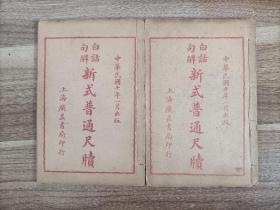 中華民國十年一月出版
白話
句解
新式普通尺牘
上海廣益書局印行
中華民國十年一月出版
白話
句解
新式普通尺牘
上海廣益書局印行